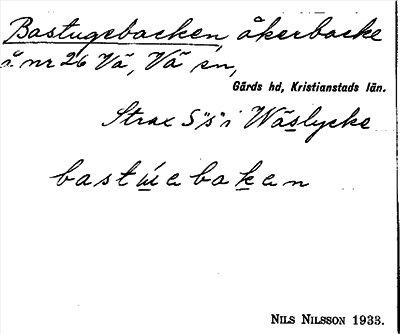 Bastugebacken, åkerbacke
å nr 26 Vä, Vä sn,
Gärds hd, Kristianstads län.
Strax S "s" i Wäslycke
bastueba ken
NILS NILSSON 1933.